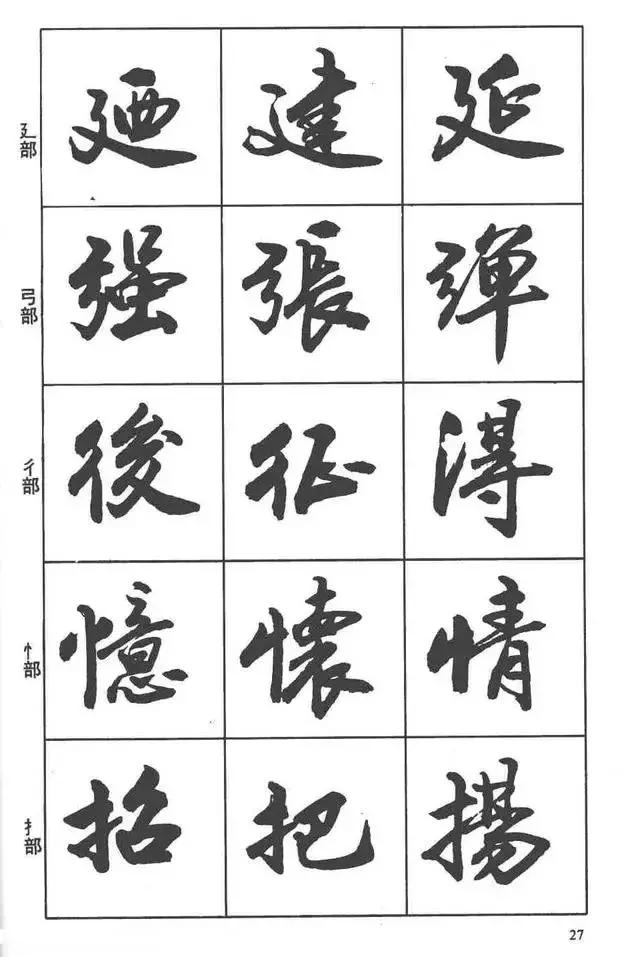 廴部 廼 建 延
弓部 强 張 彈
彳部 後 征 得
忄部 憶 懷 情
扌部 招 把 揚
27